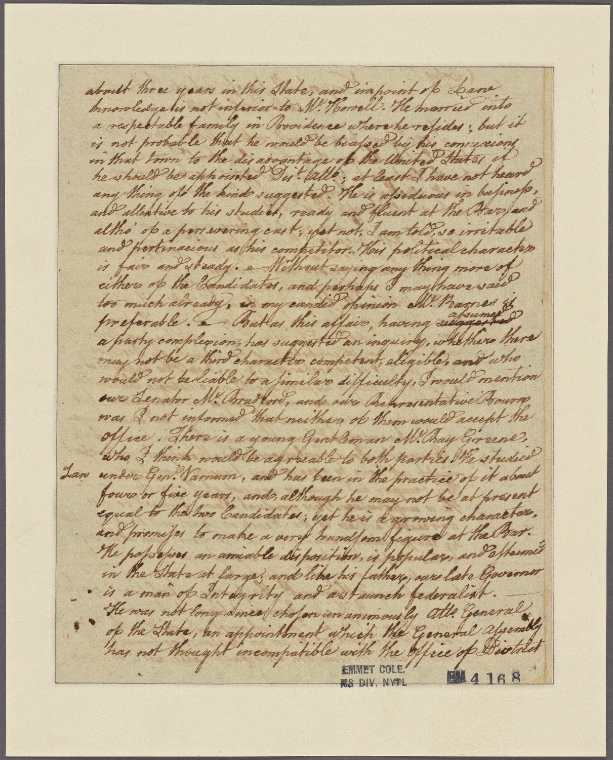 about three years in this State, and in point of Law
knowledge is not inferior to Mr. Howell. He married into
a respectable family in Providence where he resides; but it
is not probable that he would be biased by his connexions
in that town to the disadvantage of the United States if
he should be appointed Dist. Atto; at least I have not heard
any thing of the kind suggested. He is assiduous in business,
and attentive to his studies, ready and fluent at the Bar, and
altho' of a persevering cast, yet not, I am told, so irritable
and pertinacious as his competitor. His political character
is fair and steady. Without saying any thing more of
either of the Candidates, and perhaps I may have said
too much already, in my candid opinion Mr. Barnes is
preferable. But as this affair, having suggested
assumed
a party complexion, has suggested an inquiry, whether there
may not be a third character competent, eligible, and who
would not be liable to a similar difficulty, I would mention
our Senator Mr. Bradford, and our Representative Bourn
was I not informed that neither of them would accept the
office. There is a young Gentleman Mr. Ray Greene,
who I think would be agreeable to both parties. He studied
Law under Genl. Varnum, and has been in the practice of it about
four or five years, and although he may not be at present
equal to the two Candidates; yet he is a growing character,
and promises to make a very handsome figure at the Bar.
He possesses an amiable disposition, is popular, and esteem'd
in the State at large; and like his father, our late Governor
is a man of Integrity and a staunch federalist.
He was not long since chosen unanimously Atto. General
of the State, an appointment which the General Assembly
has not thought incompatible with the Office of District
EMMET COLL.
MS DIV. NYPL
EM 4168